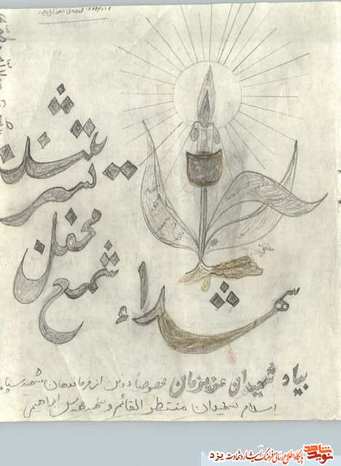 شهداء
شمع
محفل
بشر
یتند
بیاد شهیدان عزیزمان خصوصا دو تن از فرماندهان شهید سپاه
اسلام شهیدان منتظر القائم و شهید ابراهیمی
نوید شاهد
پایگاه اطلاع رسانی فرهنگ ایثار و شهادت یزد